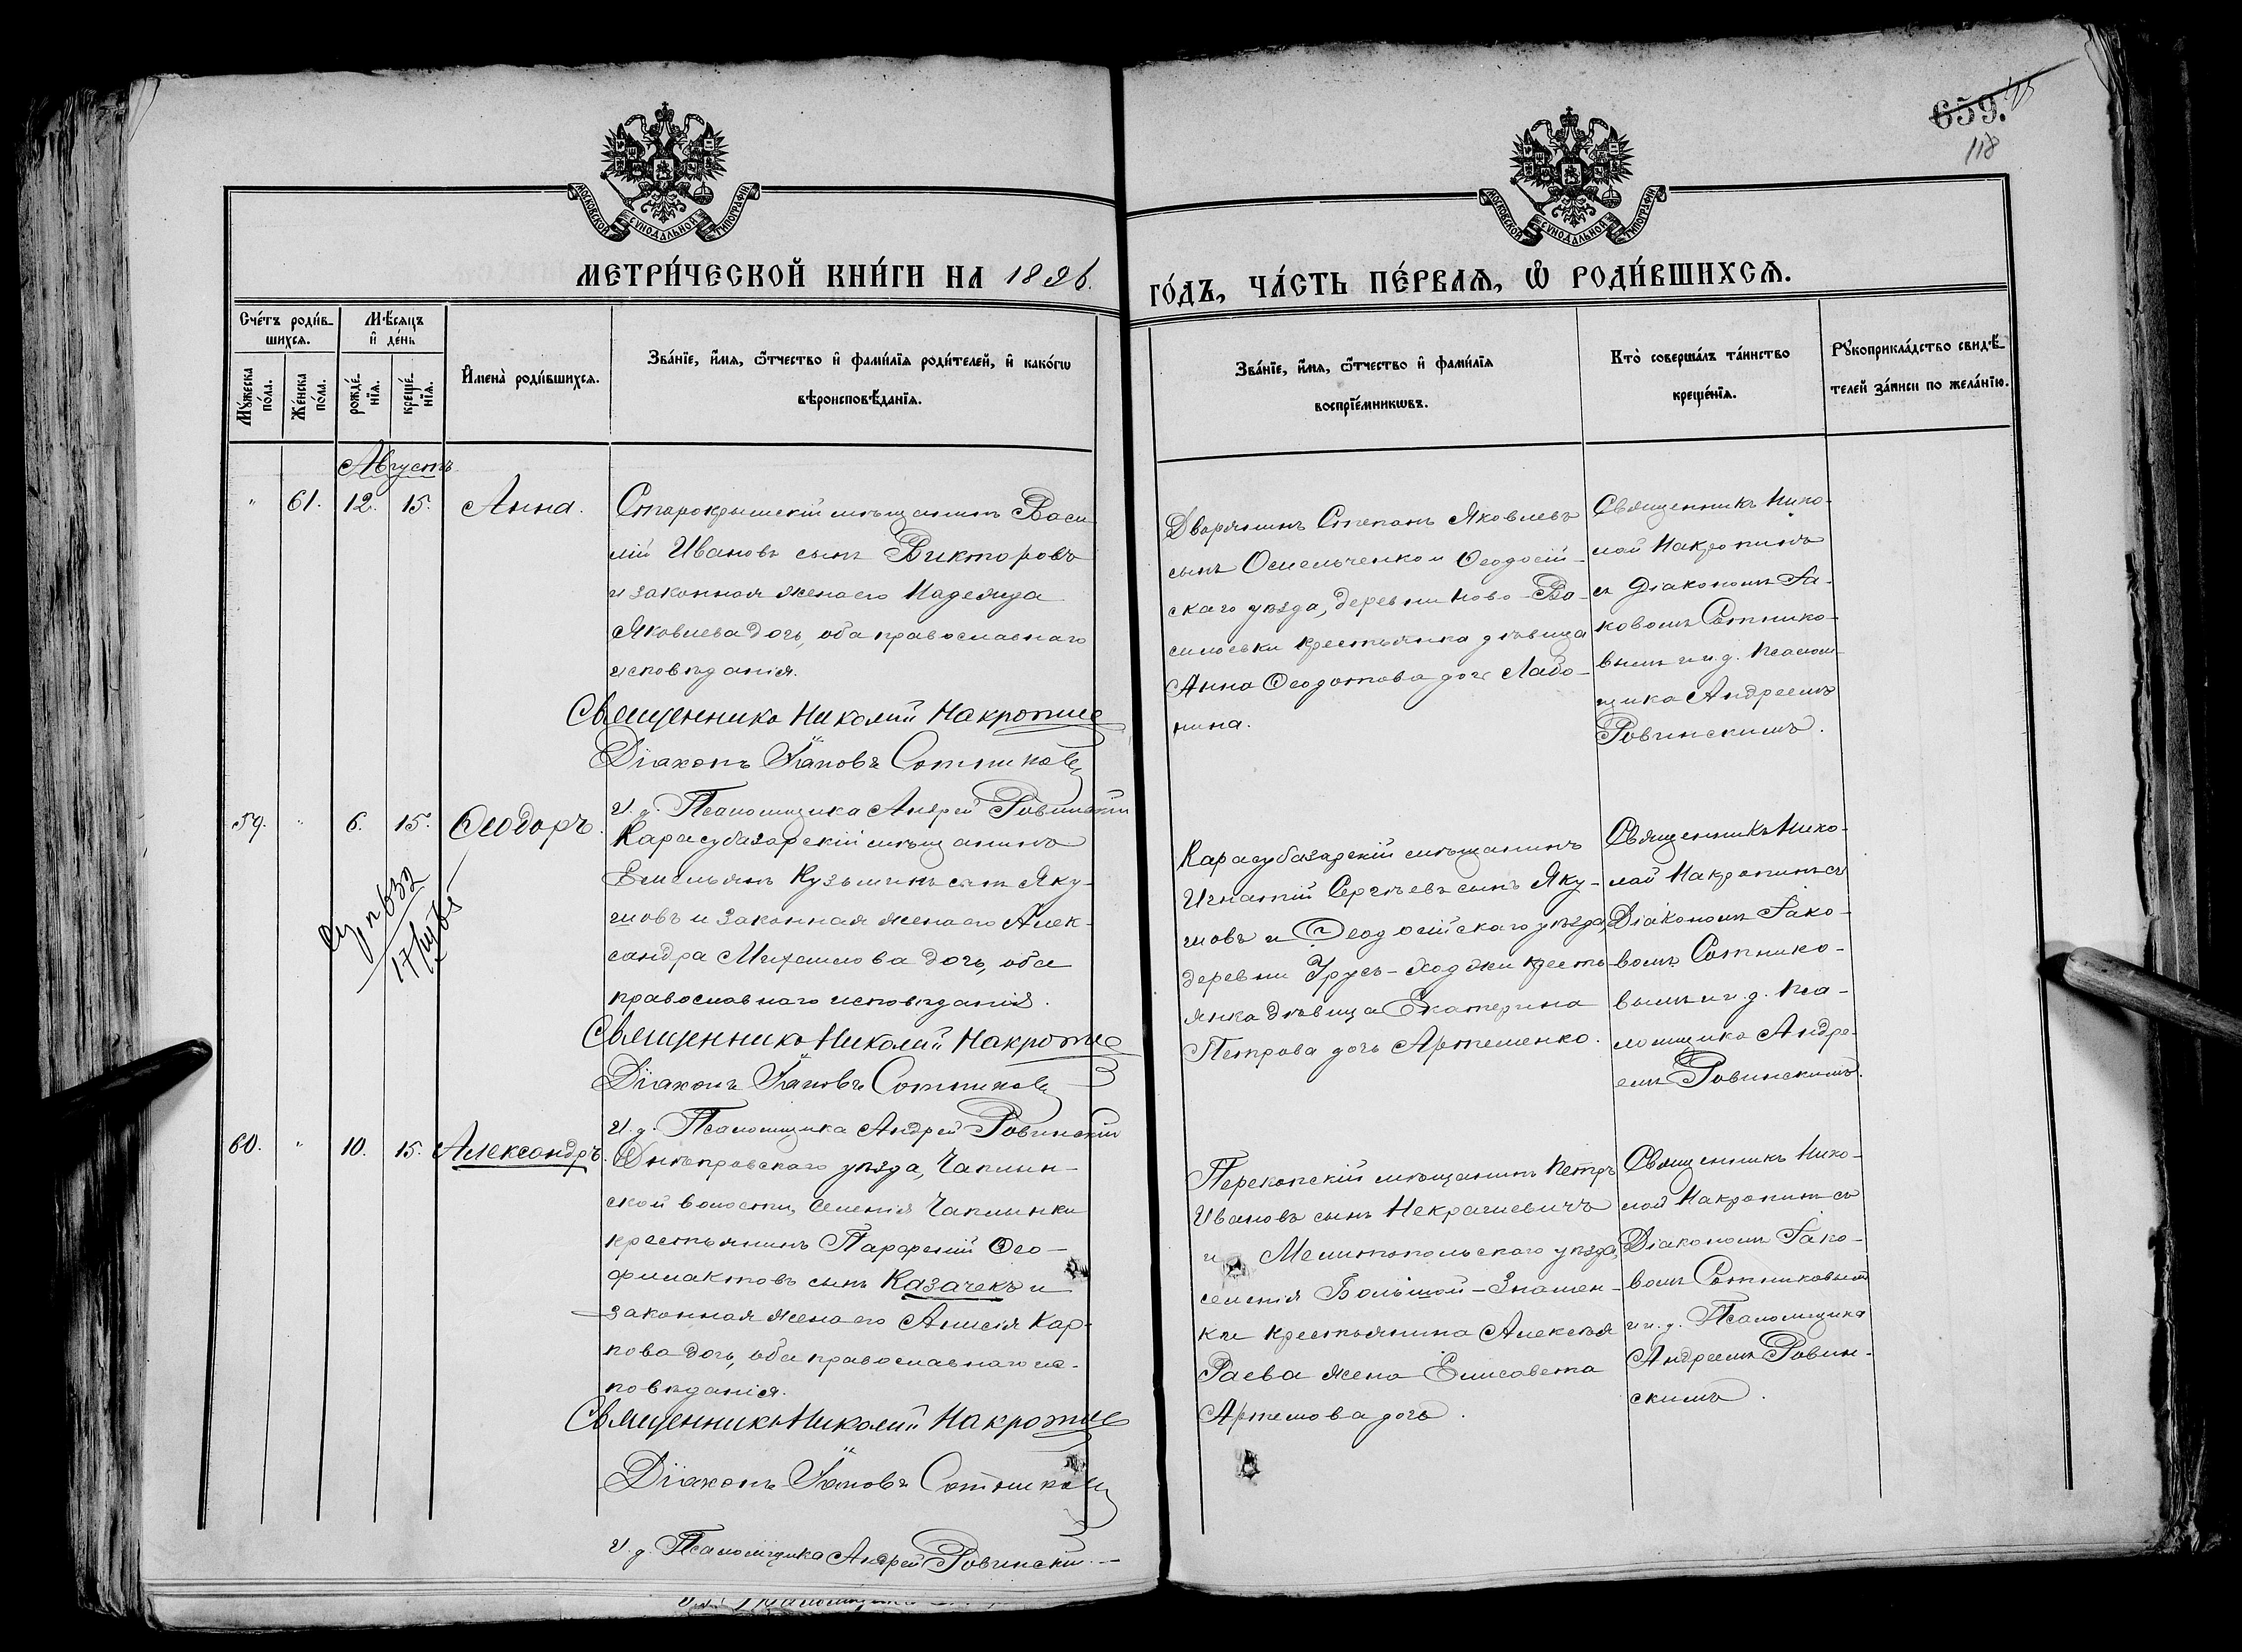 659.
118
МОСКОВСКОЙ СѴНОДАЛЬНОЙ ТИПОГРАФІИ
МОСКОВСКОЙ СѴНОДАЛЬНОЙ ТИПОГРАФІИ
МЕТРИ́ЧЕСКОЙ КНИ́ГИ НА 1896.
ГО́ДЪ, ЧА́СТЬ ПЕ́РВАѦ, Ѽ РОДИ́ВШИХСѦ.
Сче́тъ роди́в-
шихсѧ.
Мꙋ́жеска по́ла.
Же́нска по́ла.
Мѣ́сѧцъ
и҆ де́нь
рожде́-нїѧ.
креще́-нїѧ.
И҆мена̀ роди́вшихсѧ.
Зва́нїе, и҆́мѧ, ѻ҆́тчество и҆ фами́лїѧ роди́телей, и҆ како́гѡ
вѣроисповѣ́данїѧ.
Зва́нїе, и҆́мѧ, ѻ҆́тчество и҆ фами́лїѧ
воспрїе́мникѡвъ.
Кто̀ соверша́лъ та́инство
креще́нїѧ.
Рꙋкоприкла́дство свидѣ́-
телей за́писи по жела́нїю.
Августъ
" 61. 12. 15. Анна.
Старокрымскій мѣщанинъ Васи-
лій Ивановъ сынъ Викторовъ
и законная жена его Надежда
Яковлева дочь, оба православнаго
исповѣданія.
Священникъ Николай Макропи
Діаконъ Іаковъ Сотников
И. д. Псаломщика Андрей Ровинскій
Дворянинъ Степанъ Яковлевъ
сынъ Омельченко и Ѳеодосій-
скаго уѣзда, деревни Ново-Ва-
сильевки крестьянка дѣвица
Анна Ѳеодотова дочь Лабо-
нина.
Священникъ Нико-
лай Макропинъ
съ Діакономъ Іа-
ковомъ Сотнико-
вымъ и и. д. Псалом-
щика Андреемъ
Ровинскимъ.
59. " 6. 15. Ѳеодоръ.
Карасубазарскій мѣщанинъ
Емельянъ Кузьминъ сынъ Яку-
шовъ и законная жена его Алек-
сандра Михайлова дочь, оба
православнаго исповѣданія.
Священникъ Николай Макропи
Діаконъ Іаковъ Сотников
И. д. Псаломщика Андрей Ровинскій
Карасубазарскій мѣщанинъ
Игнатій Сергѣевъ сынъ Яку-
шовъ и Ѳеодосійскаго уѣзда,
деревни Урусъ-Ходжи кресть-
янка дѣвица Екатерина
Петрова дочь Артеменко.
Священникъ Нико-
лай Макропинъ съ
Діакономъ Іако-
вомъ Сотнико-
вымъ и и. д. Пса-
ломщика Андре-
емъ Ровинскимъ.
60. " 10. 15. Александръ.
Днѣпровскаго уѣзда, Чаплин-
ской волости, селенія Чаплинки
крестьянинъ Парѳеній Ѳео-
филактовъ сынъ Казачекъ и
законная жена его Анисія Кар-
пова дочь, оба православнаго ис-
повѣданія.
Священникъ Николай Макропи
Діаконъ Іаковъ Сотников
И. д. Псаломщика Андрей Ровинскій.
Перекопскій мѣщанинъ Петръ
Ивановъ сынъ Некрашевичъ
и Мелитопольскаго уѣзда,
селенія Большой-Знамен-
ки крестьянина Алексѣя
Раева жена Елисавета
Артемова дочь.
Священникъ Нико-
лай Макропинъ съ
Діакономъ Іако-
вомъ Сотниковымъ
и и. д. Псаломщика
Андреемъ Ровин-
скимъ.